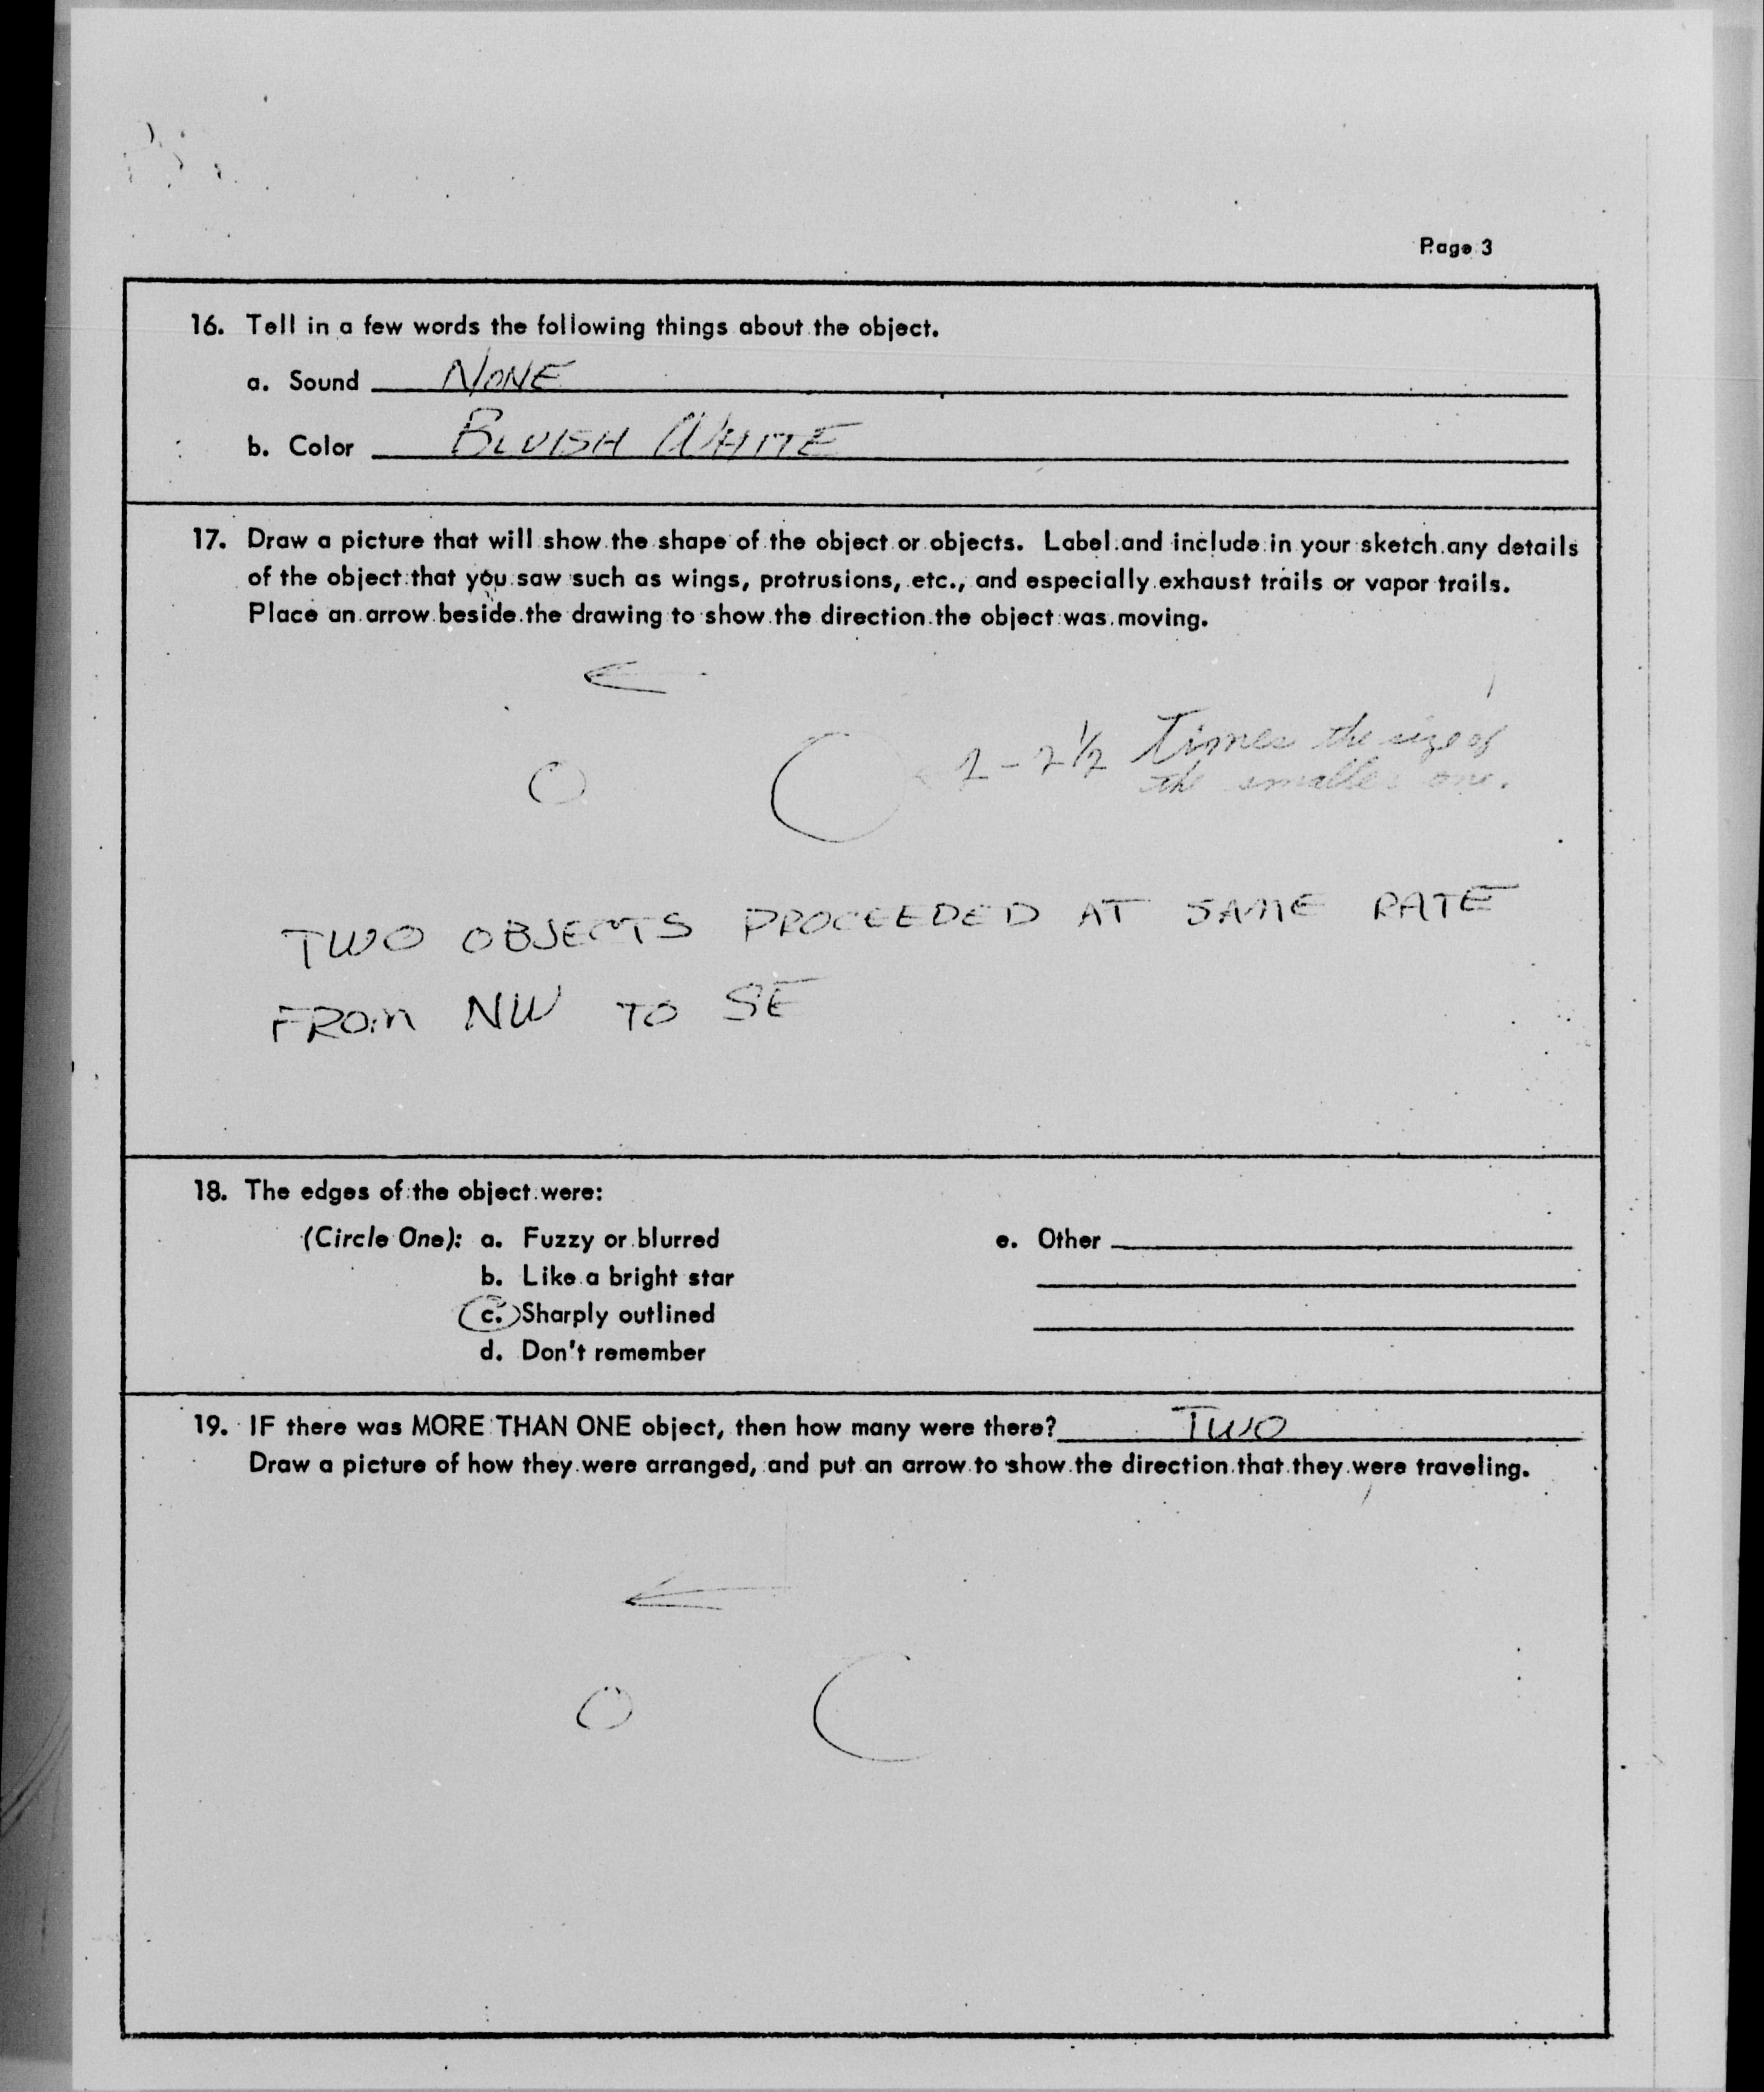 Page 3
16. Tell in a few words the following things about the object.
a. Sound NONE
b. Color BLUISH WHITE
17. Draw a picture that will show the shape of the object or objects. Label and include in your sketch any details
of the object that you saw such as wings, protrusions, etc., and especially exhaust trails or vapor trails.
Place an arrow beside the drawing to show the direction the object was moving.
2 - 2 1/2 Times the size of
the smaller one.
TWO OBJECTS PROCEEDED AT SAME RATE
FROM NW TO SE
18. The edges of the object were:
(Circle One): a. Fuzzy or blurred
b. Like a bright star
c. Sharply outlined
d. Don't remember
e. Other
19. IF there was MORE THAN ONE object, then how many were there? TWO
Draw a picture of how they were arranged, and put an arrow to show the direction that they were traveling.